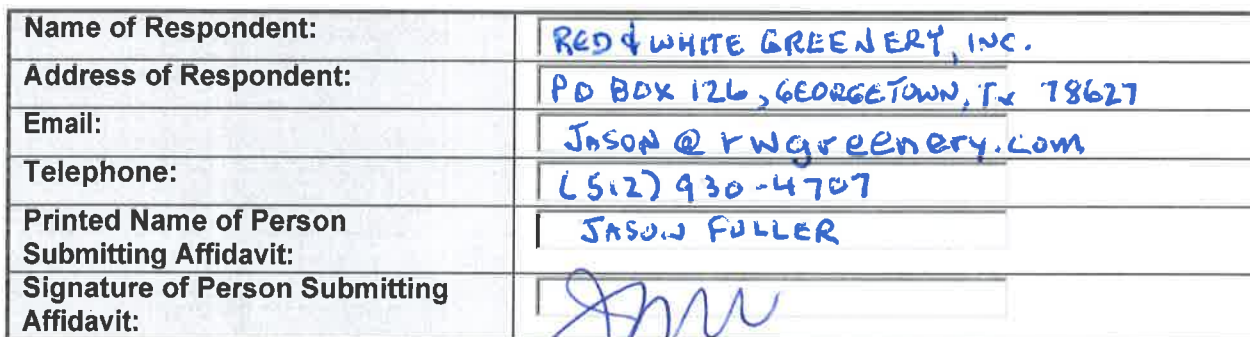 Name of Respondent: RED & WHITE GREENERY, INC.
Address of Respondent: PO BOX 126, GEORGETOWN, Tx 78627
Email: JASON @ rwgreenery.com
Telephone: (512) 930-4707
Printed Name of Person JASON FULLER
Submitting Affidavit:
Signature of Person Submitting
Affidavit: